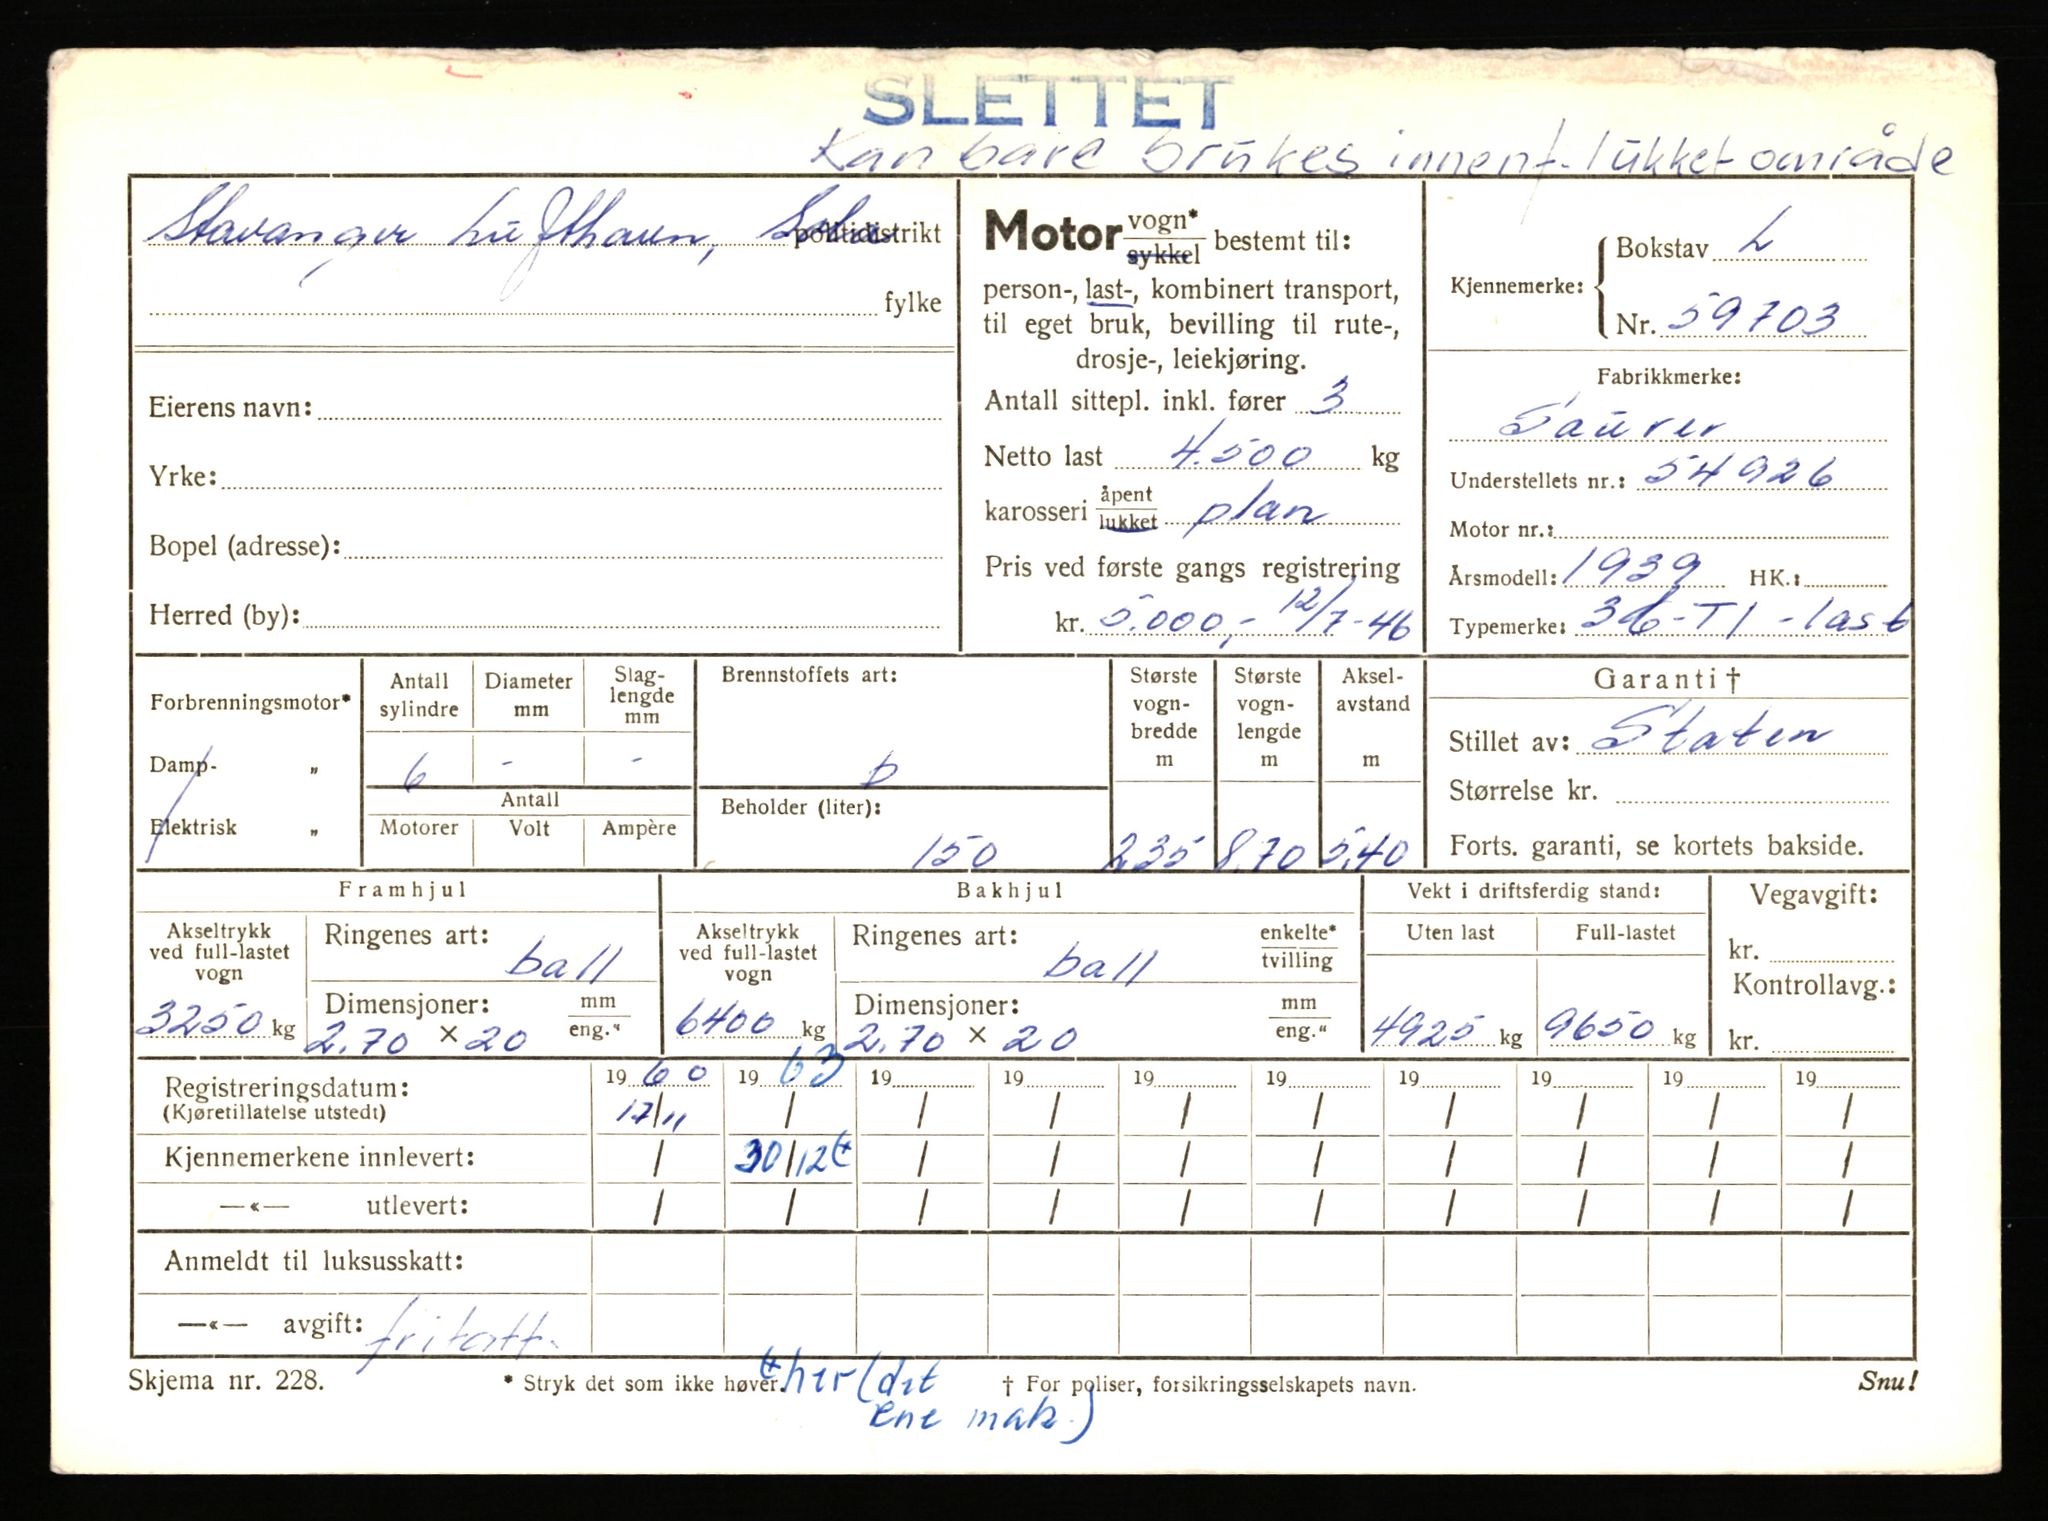 SLETTET
Kan bare brukes innenf. lukket område
Stavanger Lufthavn, Sola politidistrikt
fylke
Eierens navn:
Yrke:
Bopel (adresse):
Herred (by):
Motor vogn* sykkel bestemt til:
person-, last-, kombinert transport,
til eget bruk, bevilling til rute-,
drosje-, leiekjøring.
Antall sittepl. inkl. fører 3
Netto last 4.500 kg
karosseri åpent lukket plan
Pris ved første gangs registrering
kr. 5.000,- 12/7-46
Kjennemerke: Bokstav L
Nr. 59703
Fabrikkmerke:
Saurer
Understellets nr.: 54926
Motor nr.:
Årsmodell: 1939 HK.:
Typemerke: 36-T1-last
Forbrenningsmotor*
Damp- „
Elektrisk „
Antall sylindre
Diameter mm
Slag-lengde mm
6 - -
Antall
Motorer Volt Ampère
Brennstoffets art:
b
Beholder (liter):
150
Største vogn-bredde m
2,35
Største vogn-lengde m
8,70
Aksel-avstand m
5,40
Garanti †
Stillet av: Staten
Størrelse kr.
Forts. garanti, se kortets bakside.
Framhjul
Akseltrykk ved full-lastet vogn
3250 kg
Ringenes art:
ball
Dimensjoner: mm eng."
2.70 × 20
Bakhjul
Akseltrykk ved full-lastet vogn
6400 kg
Ringenes art: enkelte* tvilling
ball
Dimensjoner: mm eng."
2.70 × 20
Vekt i driftsferdig stand:
Uten last Full-lastet
4925 kg 9650 kg
Vegavgift:
kr.
Kontrollavg.:
kr.
Registreringsdatum: 19 60 19 63 19 19 19 19 19 19 19 19
(Kjøretillatelse utstedt) 17/11 / / / / / / / / /
Kjennemerkene innlevert: / 30/12 / / / / / / / /
—«— utlevert: / / / / / / / / / /
Anmeldt til luksusskatt:
—«— avgift: fritatt.
Skjema nr. 228.
* Stryk det som ikke høver.
her (det
ene mak.)
† For poliser, forsikringsselskapets navn.
Snu!